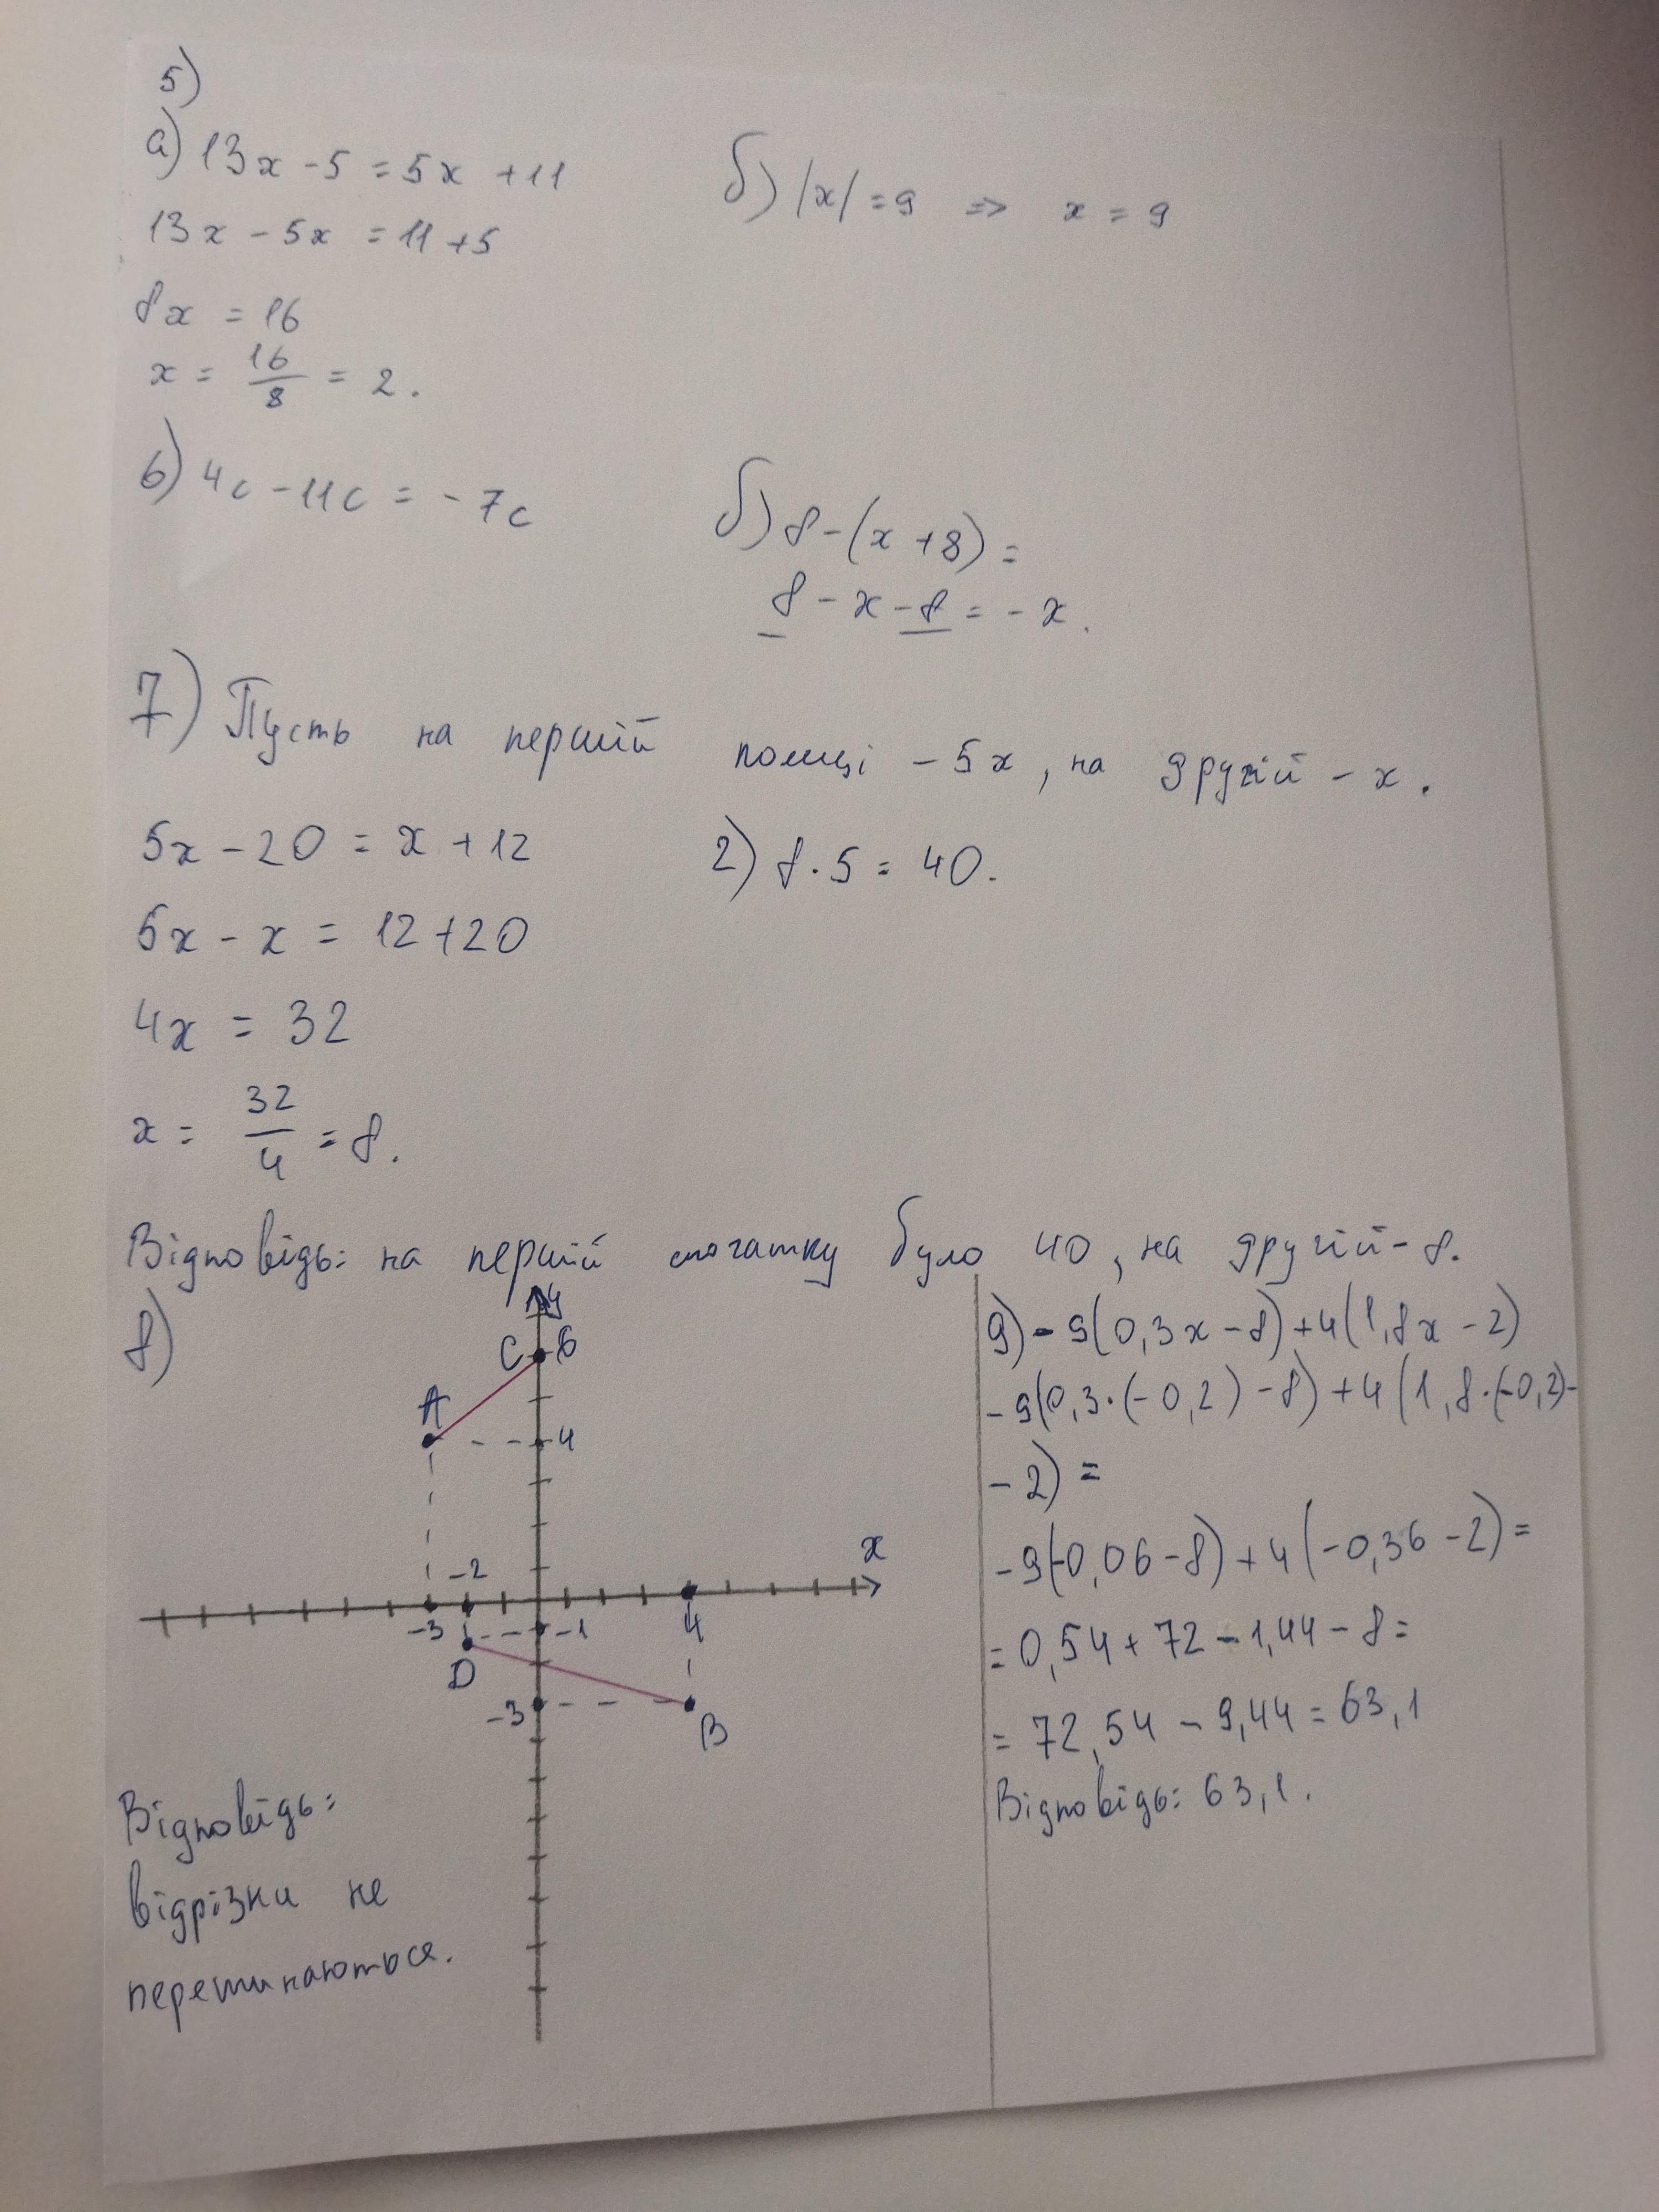 5)
а) 13x - 5 = 5x + 11
13x - 5x = 11 + 5
8x = 16
x = 16/8 = 2.
б) |x| = 9 => x = 9
6) 4c - 11c = - 7c
б) 8 - (x + 8) =
8 - x - 8 = - x.
7) Пусть на першій полиці - 5x, на другій - x.
5x - 20 = x + 12
5x - x = 12 + 20
4x = 32
x = 32/4 = 8.
2) 8 · 5 = 40.
Відповідь: на першій спочатку було 40, на другій - 8.
8)
y
C 6
A
4
x
-2
-3
-1
4
D
-3
B
Відповідь:
відрізки не
перетинаються.
9) - 9(0,3x - 8) + 4(1,8x - 2)
- 9(0,3·(-0,2) - 8) + 4(1,8·(-0,2) -
- 2) =
- 9(-0,06 - 8) + 4(-0,36 - 2) =
= 0,54 + 72 - 1,44 - 8 =
= 72,54 - 9,44 = 63,1
Відповідь: 63,1.